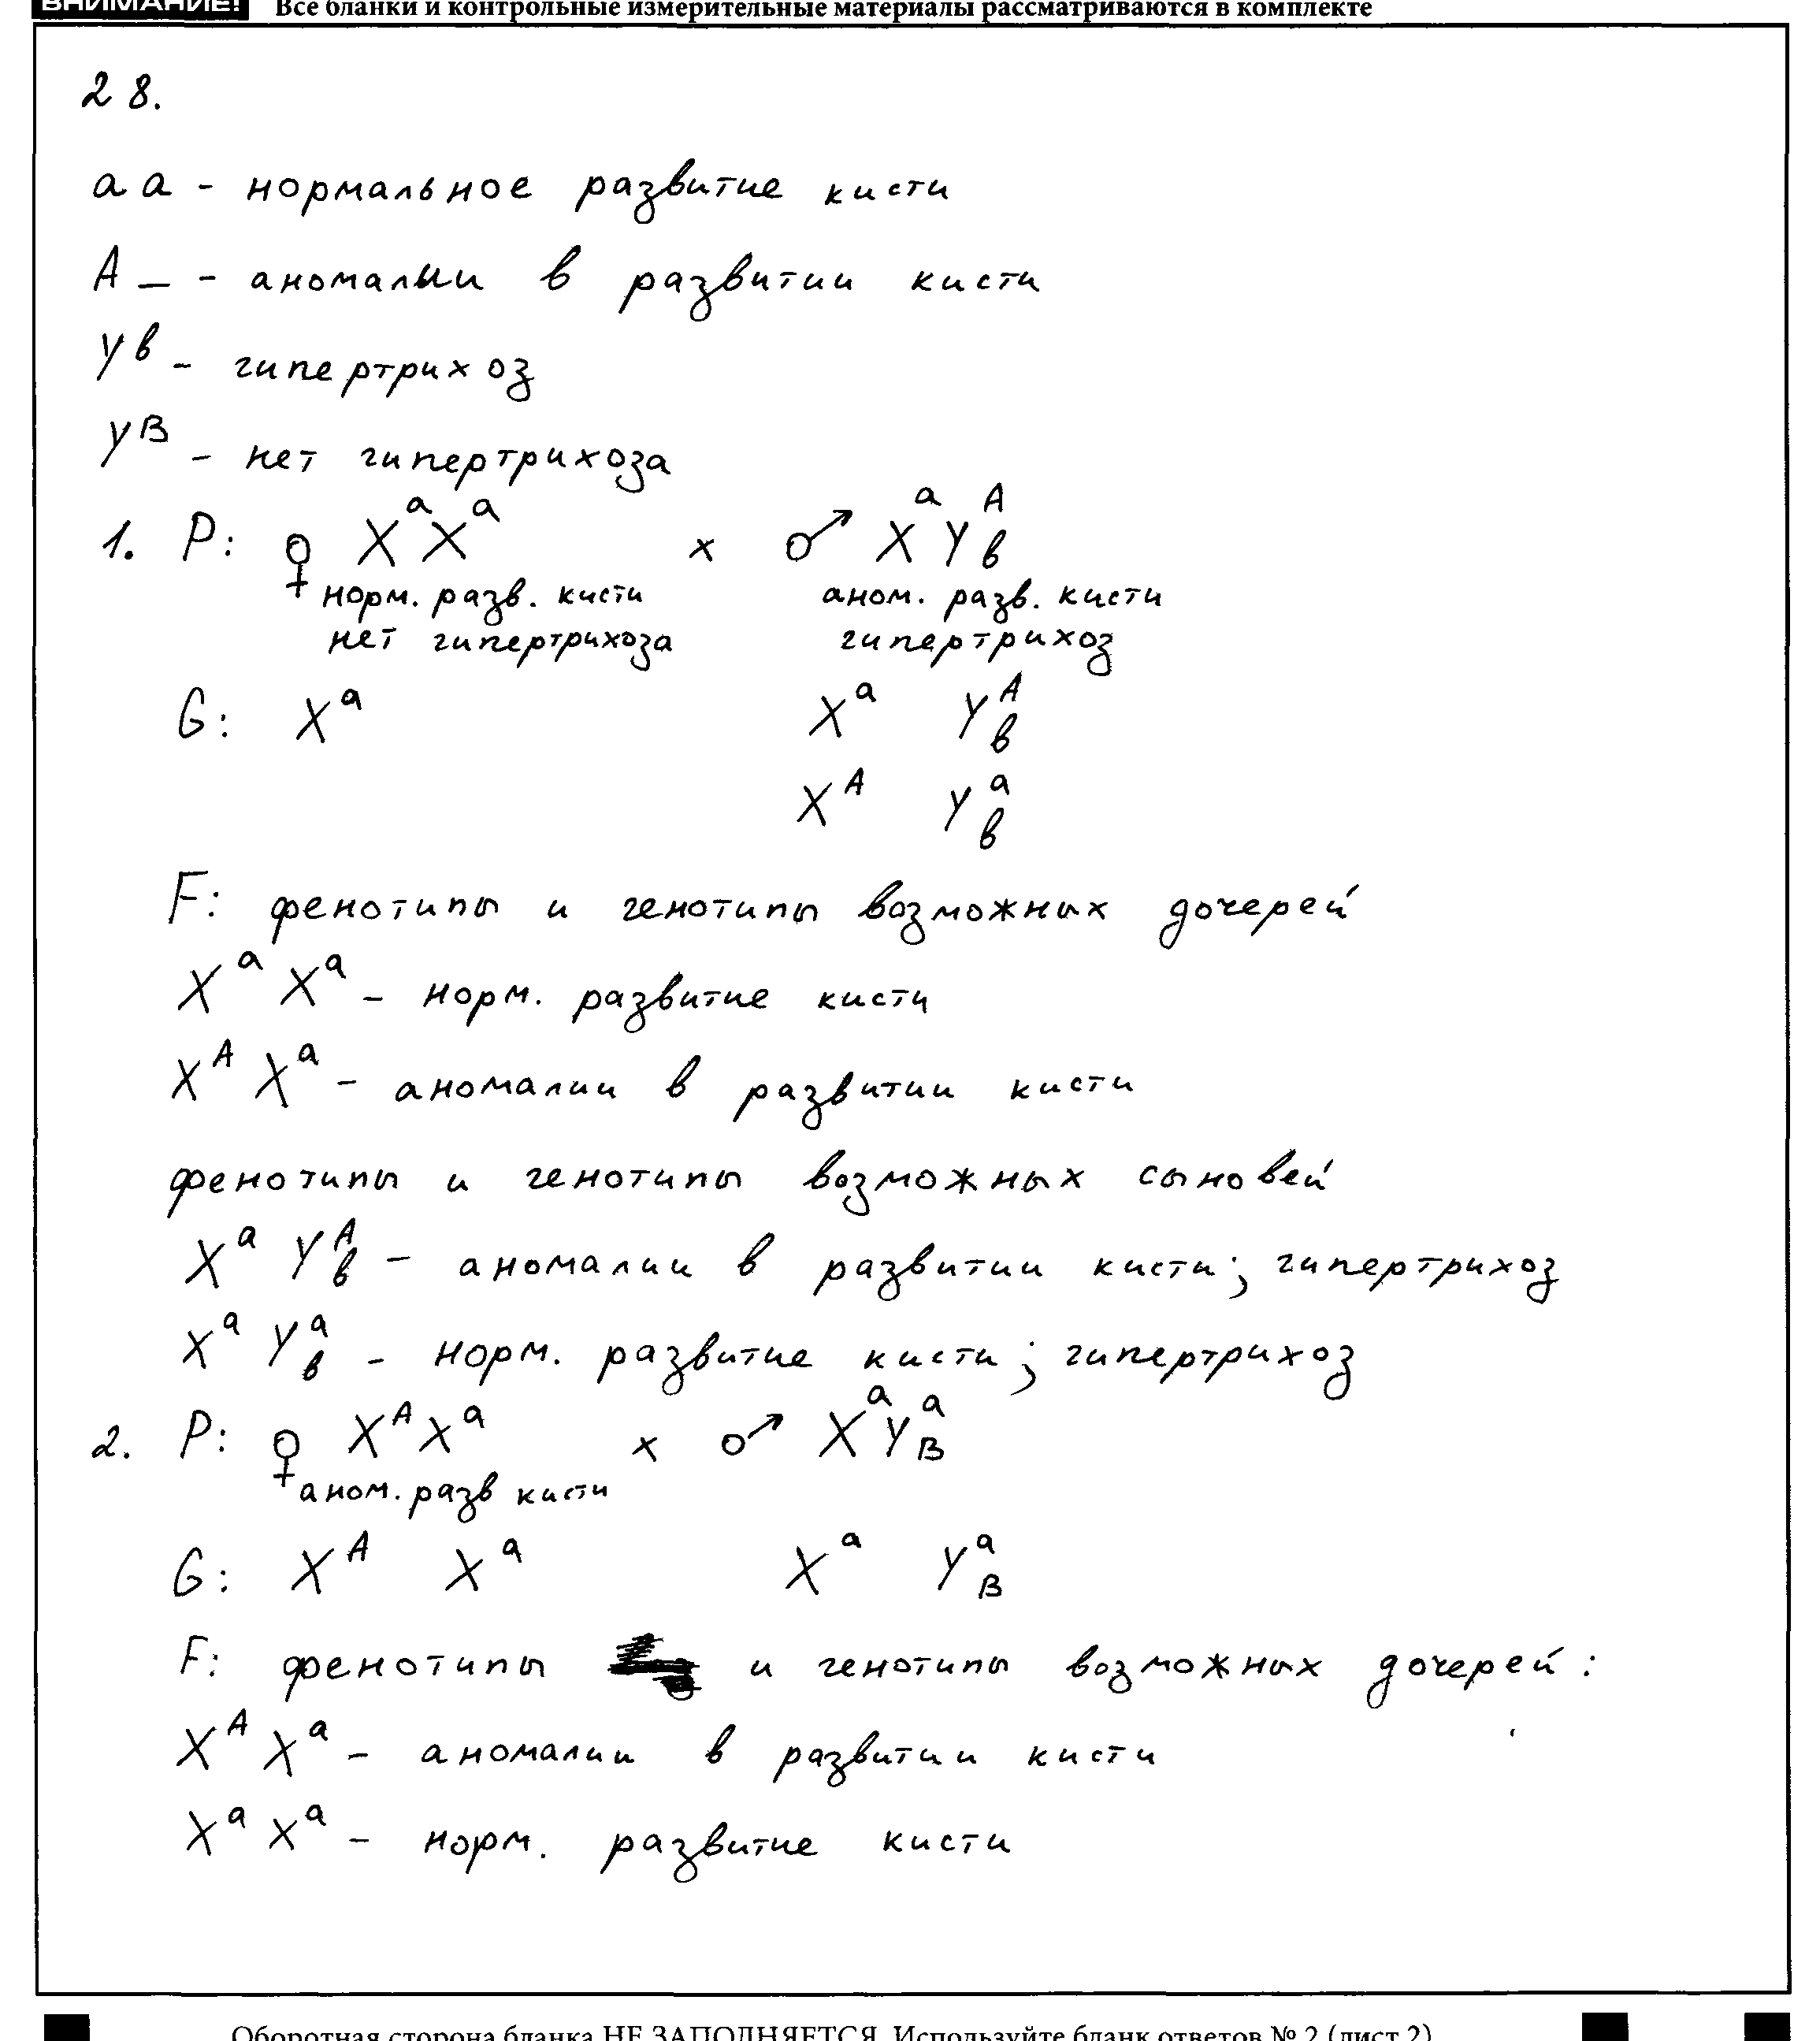 ВНИМАНИЕ! Все бланки и контрольные измерительные материалы рассматриваются в комплекте
28.
аа - нормальное развитие кисти
А_ - аномалии в развитии кисти
Yᵇ - гипертрихоз
Yᴮ - нет гипертрихоза
1. P: ♀ XᵃXᵃ x ♂ XᵃYᴬв
норм. разв. кисти аном. разв. кисти
нет гипертрихоза гипертрихоз
G: Xᵃ Xᵃ Yᴬв
Xᴬ Yᵃв
F: фенотипы и генотипы возможных дочерей
Xᵃ Xᵃ - норм. развитие кисти
Xᴬ Xᵃ - аномалии в развитии кисти
фенотипы и генотипы возможных сыновей
Xᵃ Yᴬв - аномалии в развитии кисти; гипертрихоз
Xᵃ Yᵃв - норм. развитие кисти; гипертрихоз
2. P: ♀ XᴬXᵃ x ♂ XᵃYᵃB
аном. разв кисти
G: Xᴬ Xᵃ Xᵃ YᵃB
F: фенотипы и генотипы возможных дочерей:
Xᴬ Xᵃ - аномалии в развитии кисти
Xᵃ Xᵃ - норм. развитие кисти
Оборотная сторона бланка НЕ ЗАПОЛНЯЕТСЯ. Используйте бланк ответов № 2 (лист 2)